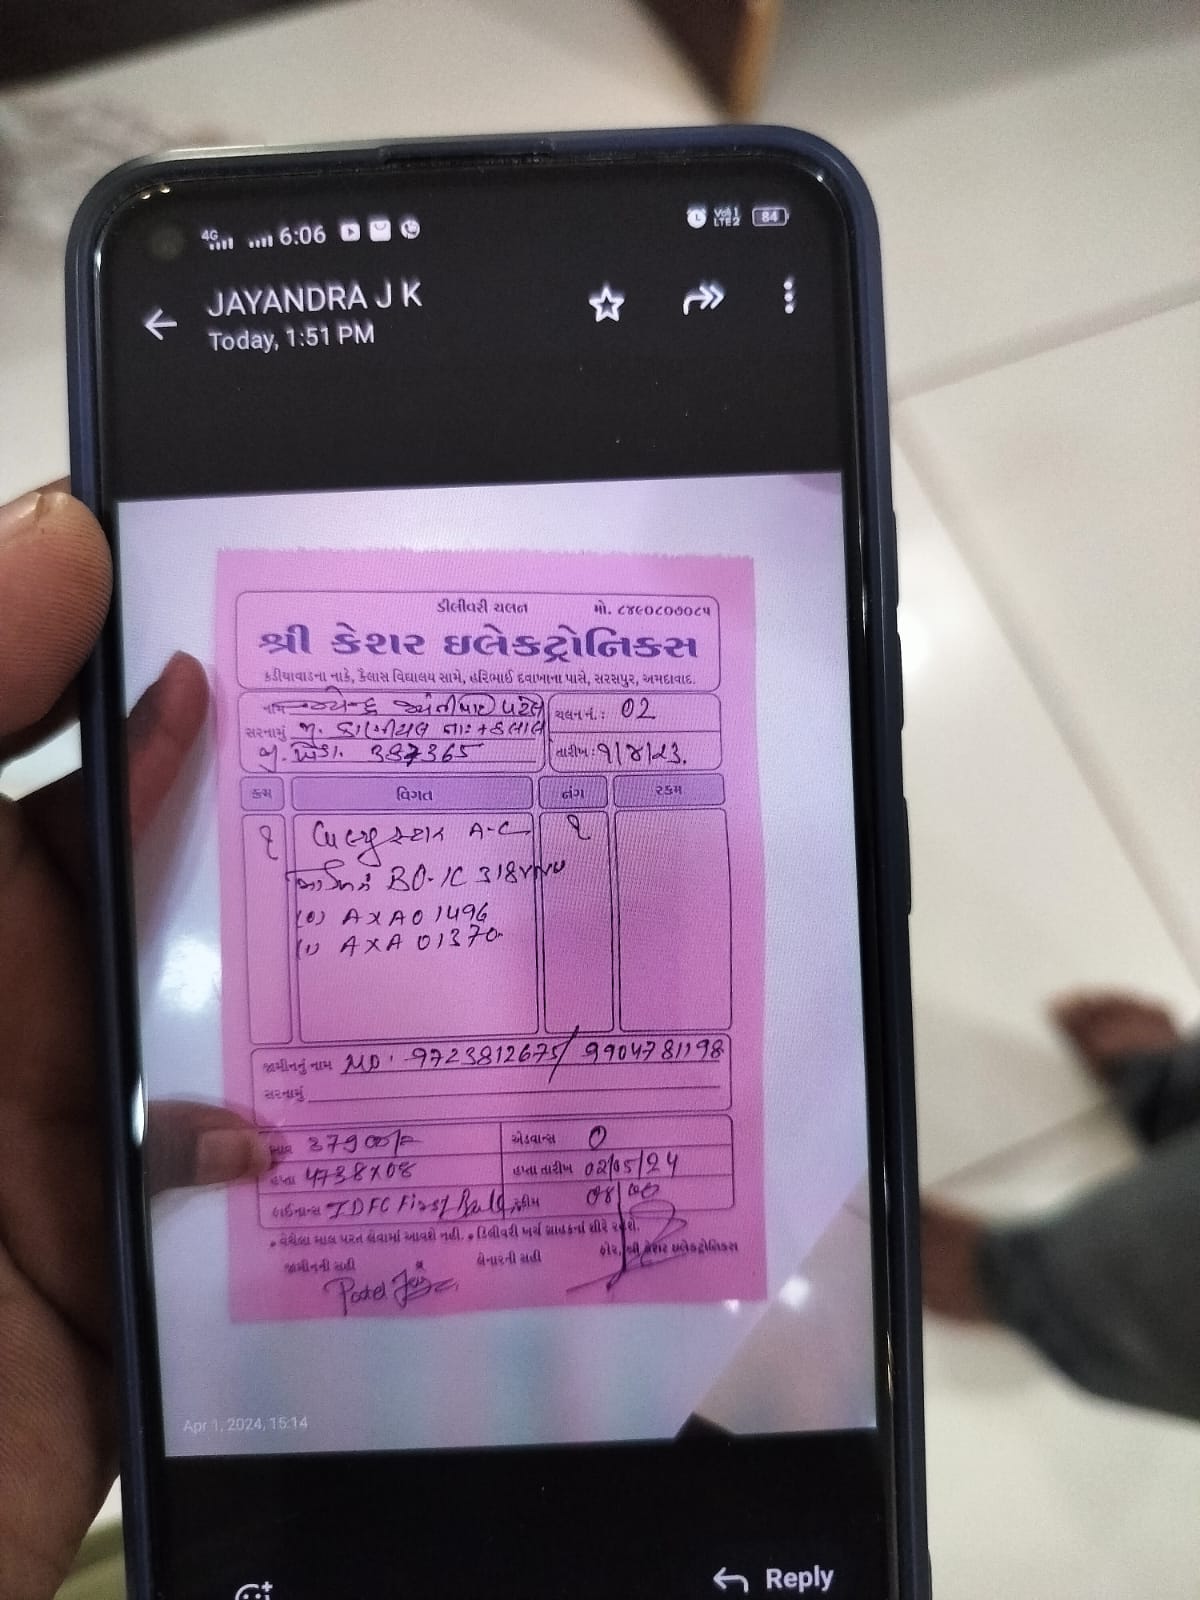 4G 6:06 VoLTE1 LTE2 84
JAYANDRA J K
Today, 1:51 PM
ડીલીવરી ચલન મો. ૮૪૯૦૮૦૭૦૮૫
શ્રી કેશર ઇલેક્ટ્રોનિક્સ
કડીયાવાડના નાકે, કૈલાસ વિદ્યાલય સામે, હરિભાઈ દવાખાના પાસે, સરસપુર, અમદાવાદ.
નામ પટેલ
ચલન નં.: 02
સરનામું મુ.
જી. ખેડા. 387365
તારીખ: ૧/૪/૨૩.
ક્રમ વિગત નંગ રકમ
૧ બ્લ્યુ સ્ટાર A-C ૧
BO-IC 318
(0) AXA01496
(1) AXA 01370
જામીનનું નામ MO. 9723812675/ 9904781198
સરનામું
ભાવ 37900/= એડવાન્સ 0
હપ્તા 4738X08 હપ્તા તારીખ 02/05/24
ફાઈનાન્સ IDFC First સ્કીમ 08/00
• વેચેલા માલ પરત લેવામાં આવશે નહી. • ડિલીવરી ખર્ચ ગ્રાહકનાં શીરે રહેશે.
જામીનની સહી લેનારની સહી ફોર, શ્રી કેશર ઇલેક્ટ્રોનિક્સ
Patel
Apr 1, 2024, 15:14
Reply